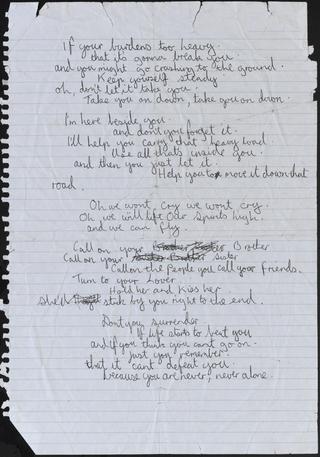 If your burdens too heavy.
that its gonna break you
and you might go crashing to the ground.
Keep yourself steady
oh, don't let it take you.
Take you on down, take you on down.
I'm here beside you.
and don't you forget it.
I'll help you carry that heavy load.
Use all thats inside you.
and then you just let it.
Help you to move it down that
road.
Oh we wont, cry we wont cry.
Oh we will life our spirits high.
and we can fly.
Call on your Brother
Call on your Sister
Call on the people you call your friends.
Turn to your Lover
Hold her and kiss her
she'll stick by you right to the end.
Dont you surrender
If life starts to beat you
and if you think you cant go on.
Just you remember.
that it cant defeat you.
because you are never, never alone.